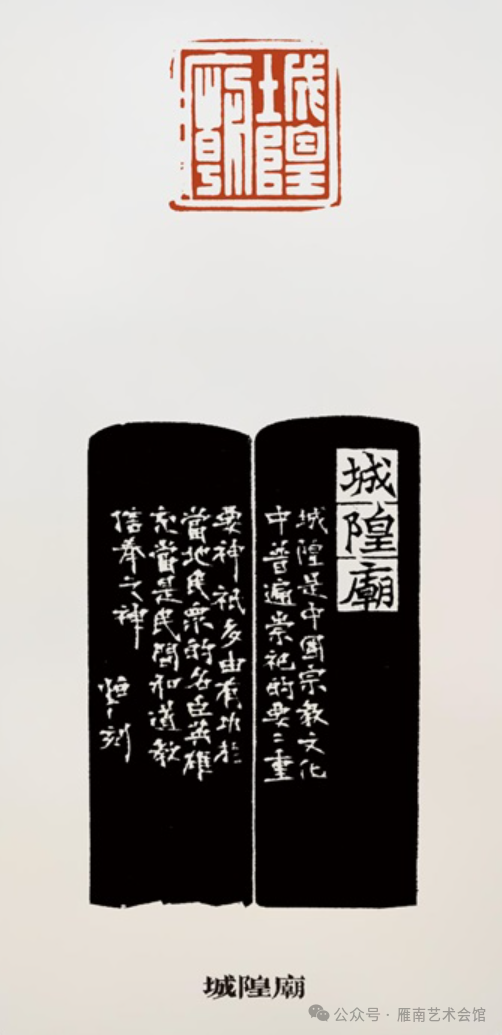 城隍廟
城隍廟
城隍是中國宗教文化
中普遍崇祀的要〻重
要神祇多由有功於
當地民眾的名臣英雄
充當是民間和道教
信奉之神
刻
城隍廟
公众号 · 雁南艺术会馆